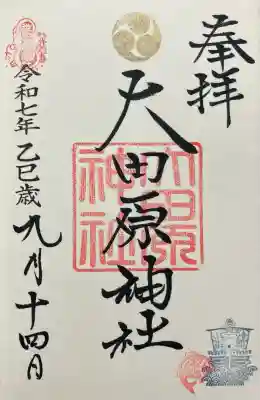 奉拝
大田原神社
大田原
神社
令和七年 乙巳歳 九月十四日